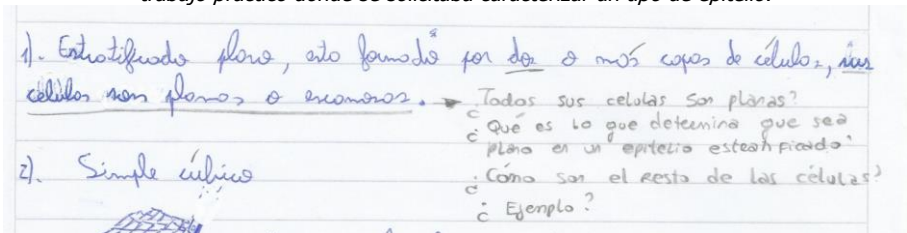 trabajo práctico donde se solicitaba caracterizar un tipo de epitelio.
1). Estratificado plano, esto formado por dos o más capas de célula, sus
células son planas o escamosas. Todas sus celulas son planas?
¿Qué es lo que determina que sea
plano en un epitelio estratificado?
2). Simple cúbico
¿Cómo son el resto de las células?
¿Ejemplo?